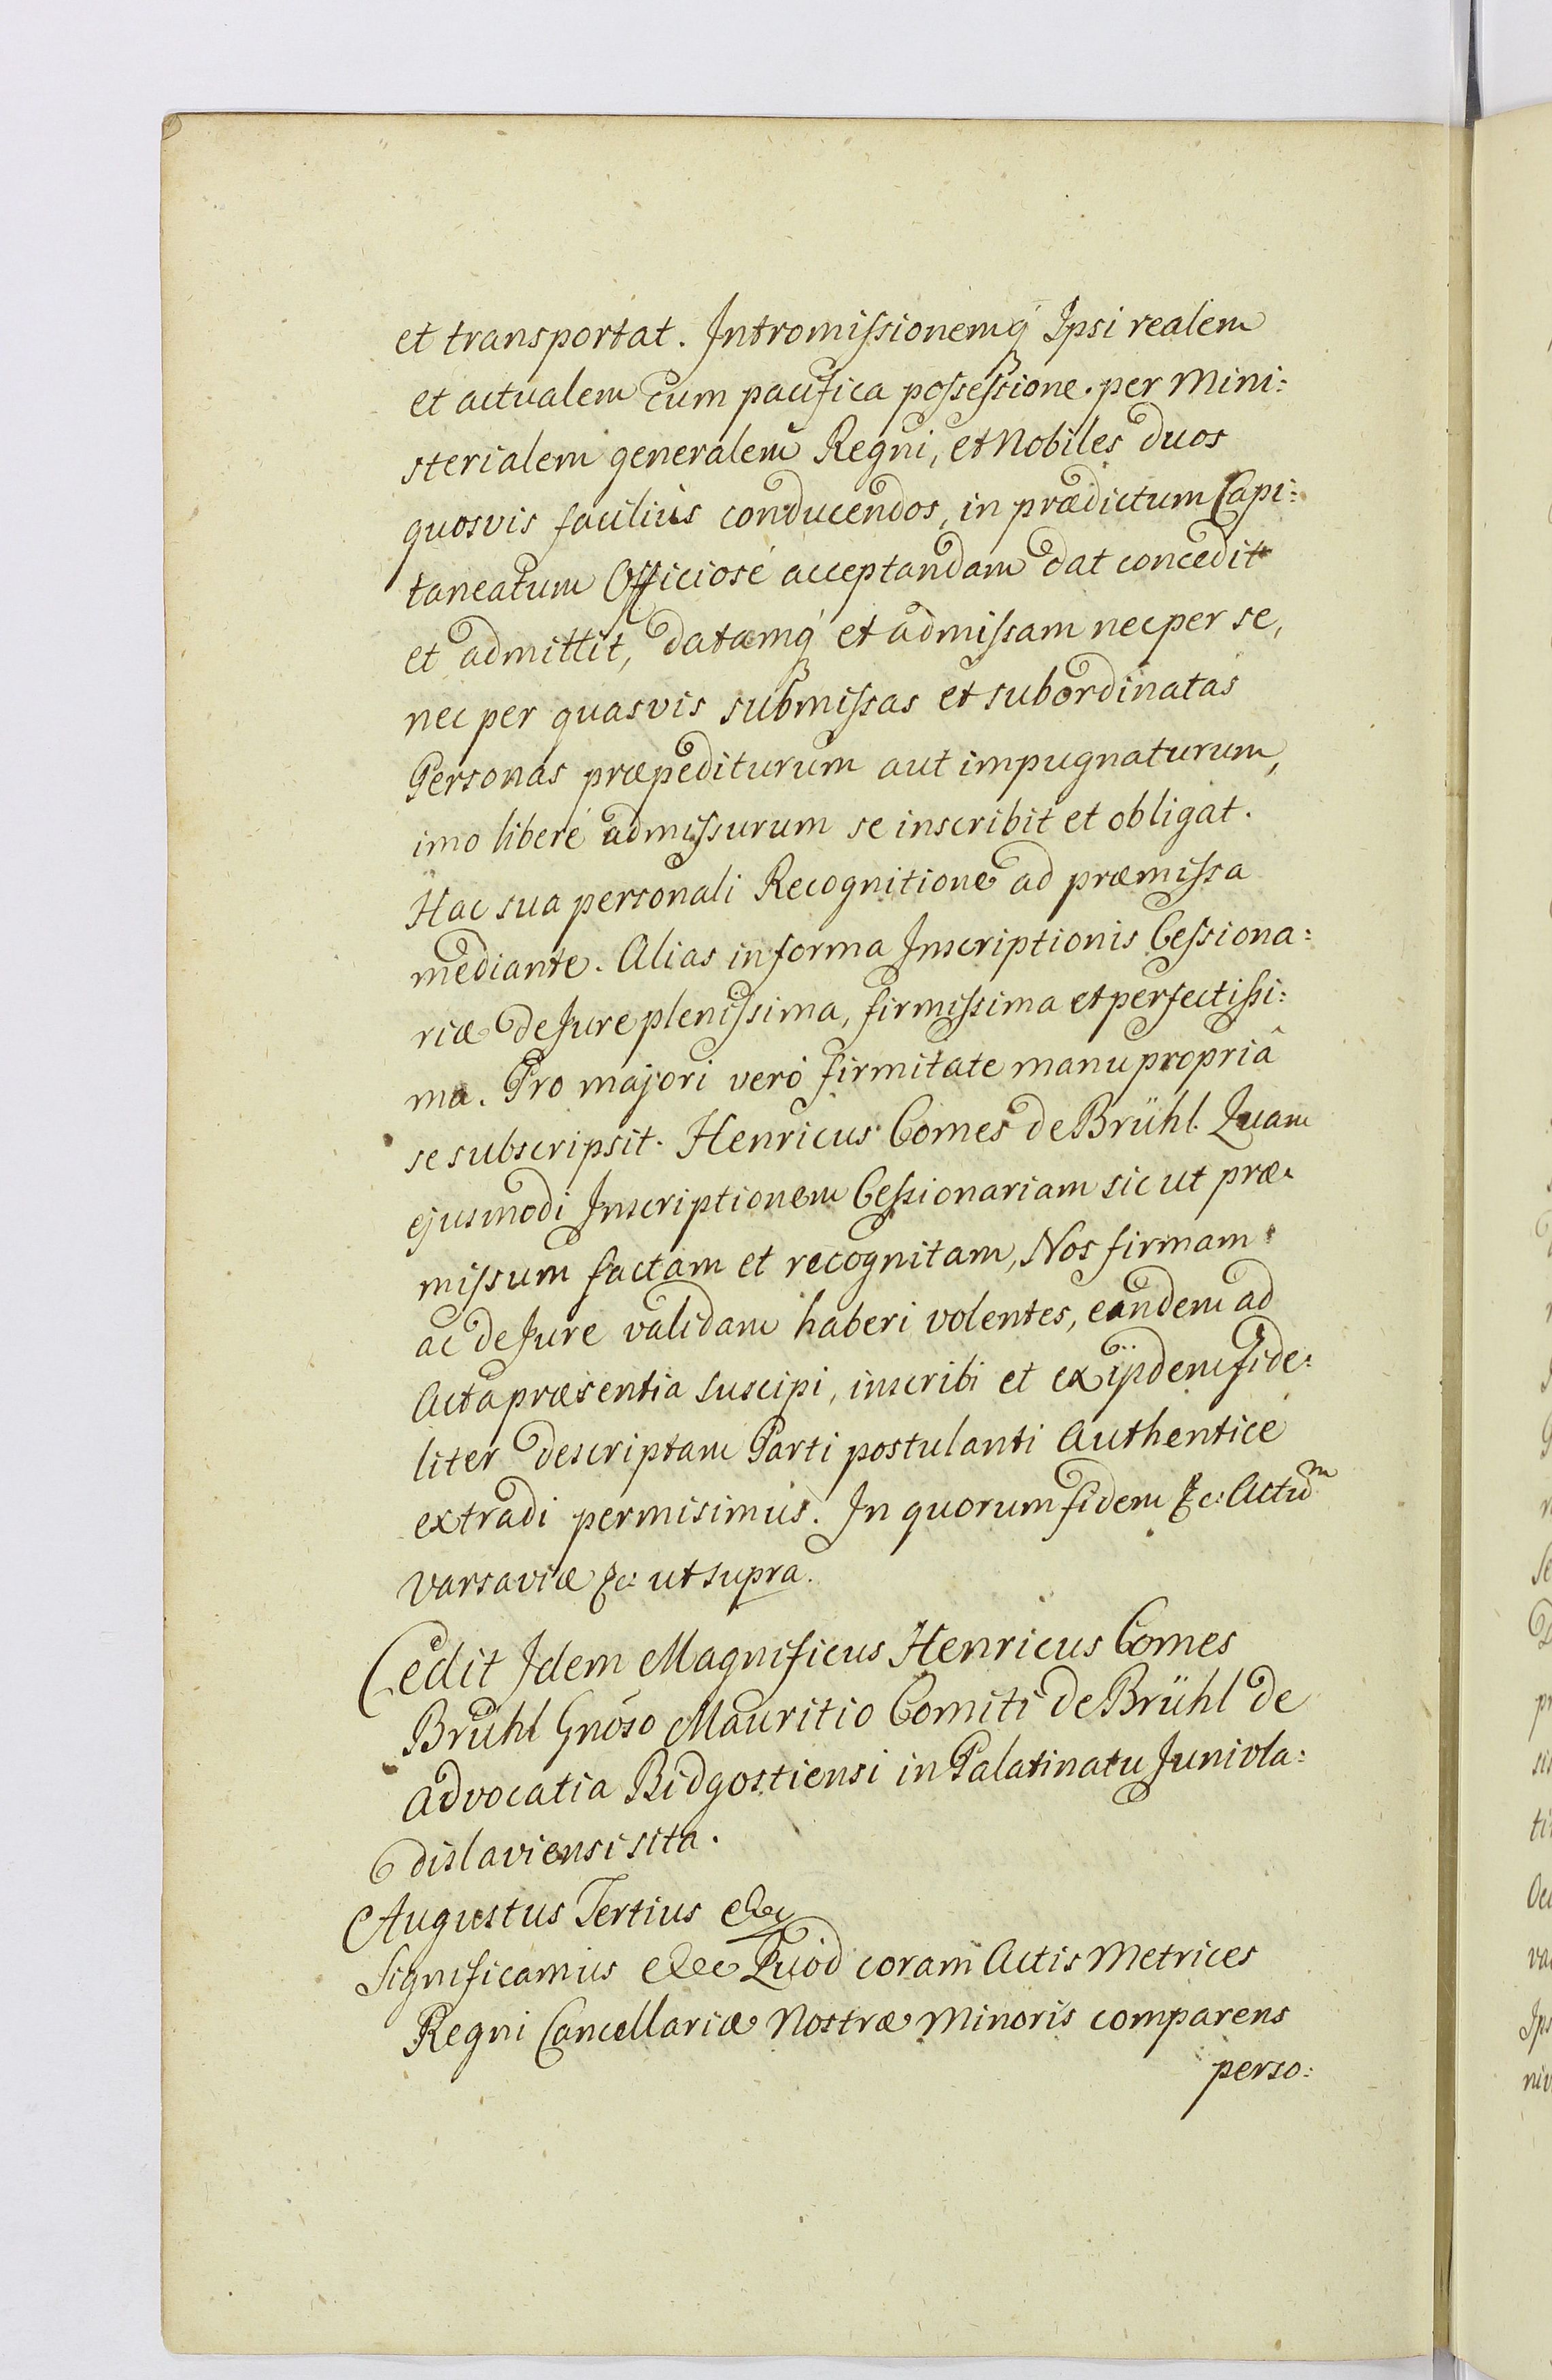 et transportat. Intromissionemq́ Ipsi realem
et actualem cum pacifica possessione per Mini:
sterialem generalem Regni, et Nobiles duos
quosvis facilius conducendos, in prædictum Capi:
taneatum Officiosé acceptandam dat concedit
et admittit, datamq́ et admissam nec per se,
nec per quasvis submissas et subordinatas
Personas præpediturum aut impugnaturum,
imo liberé admissurum se inscribit et obligat.
Hac sua personali Recognitione ad præmissa
mediante. Alias in forma Inscriptionis Cessiona:
riæ de Jure plenissima, firmissima et perfectissi:
ma. Pro majori veró firmitate manu propriâ
se subscripsit. Henricus Comes de Brühl. Quam
ejusmodi Inscriptionem Cessionariam sic ut præ:
missum factam et recognitam, Nos firmam
ac de Jure validam haberi volentes, eandem ad
Acta præsentia suscipi, inscribi et ex ijsdem fide:
liter descriptam Parti postulanti Authenticé
extradi permisimus. In quorum fidem &c: Actum
Varsaviæ &c: ut supra.
Cedit Idem Magnificus Henricus Comes
Brühl Gnóso Mauritio Comiti de Brühl de
Advocatia Bidgostiensi in Palatinatu Junivla:
dislaviensi sita.
Augustus Tertius &c
Significamus &c Quod coram Actis Metrices
Regni Cancellariæ Nostræ Minoris comparens
perso: